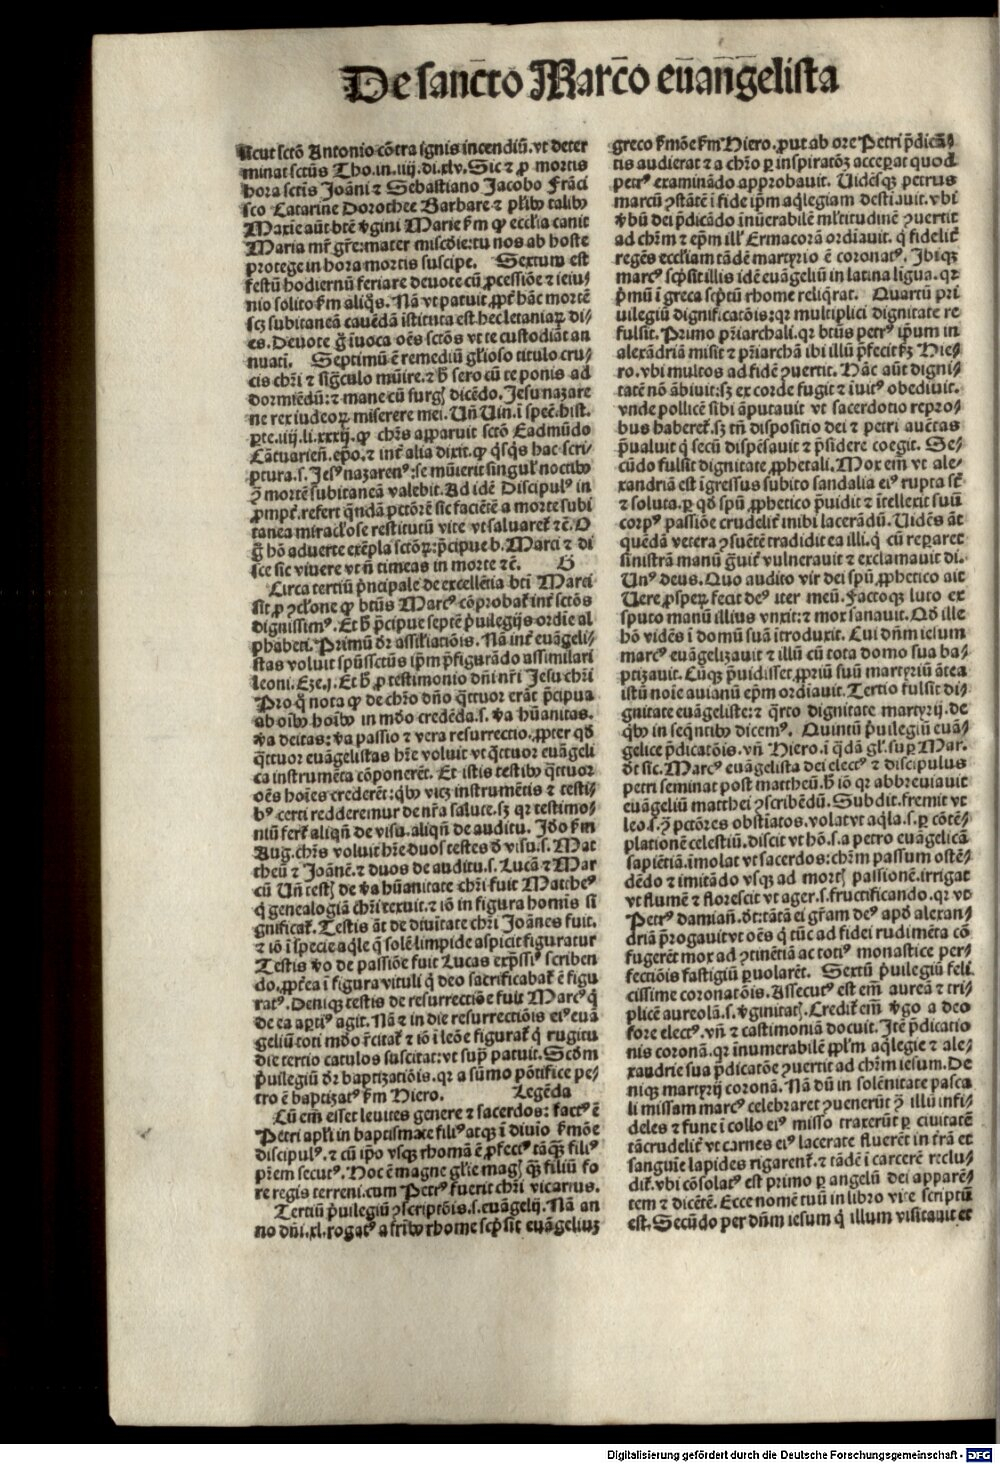 De sancto Marco euãngelista
sicut sctõ Antonio cõtra ignis incendiũ. vt deter
minat sctũs Tho. in .iiij. di. xlv. Sic ⁊ ꝓ mortis
hora sctis Joãni ⁊ Sebastiano Jacobo Frãci
sco Catarine Dorothee Barbare ⁊ plib9 talib9
Maxie aũt btẽ v̾gini Marie fm ꝙ ecclia canit
Maria mr̃ gr̃e: mater miscdie: tu nos ab hoste
protege in hora mortis suscipe. Sextum est
festũ hodiernũ feriare deuote cũ ꝓcessiõe ⁊ ieiu⸗
nio solito fm aliq̃s. Nã vt patuit ꝓpt̃ hãc mortẽ
scꝫ subitaneã cauẽdã istituta est hec letaniaꝝ di⸗
es. Deuote g̃ iuoca oẽs sctõs vt te custodiãt an
nuati. Septimũ ẽ remediũ gl̃ioso titulo cru⸗
cis chr̃i ⁊ sig̃culo mũire. ⁊ h̃ sero cũ te ponis ad
dormiẽdũ: ⁊ mane cũ surgꝭ dicẽdo. Jesu nazare
ne rex iudeoꝝ miserere mei. Uñ Uin. i spec̃. hist.
ꝑte. iiij. li. xxxij. ꝙ chr̃s apparuit sctõ Eadmũdo
Cãtuarieñ. epõ. ⁊ int̃ alia dixit. ꝙ q̃sq̃s hac scri⸗
ptura. s. Jes9 nazaren9: se mũierit singul̃ noctib9
ꝯ̃ mortẽ subitaneã valebit. Ad idẽ Discipul9 in
ꝓmpt̃. refert q̃ndã pctõrẽ sic faciẽtẽ a morte subi
tanea miracl̃ose restitutũ vite vt saluaret̃ ⁊c̃. O
g̃ hõ aduerte exẽpla sctõꝝ: p̃cipue b. Marci ⁊ di
sce sic viuere vt ñ timeas in morte ⁊c̃. G
Circa tertiũ p̃ncipale de excellẽtia bti Marci
sit ꝓ ꝯcl̃one ꝙ btũs Marc9 cõprobat̃ int̃ sctõs
dignissim9. Et h̃ p̃cipue septẽ p̃uilegijs ordie al
phabeti. Primũ dr̃ assil̃iatiõis. Nã int̃ euãgeli⸗
stas voluit spũssctũs ip̃m p̃figurãdo assimilari
leoni. Eze. j. Et h̃ ꝓ testimonio dñi nr̃i Jesu chr̃i
Pro q̃ nota ꝙ de chr̃o dño q̃ttuor erãt p̃cipua
ab oib9 hoib9 in mũdo credẽda. s. v̾a hũanitas.
v̾a deitas: v̾a passio ⁊ vera resurrectio. ꝓpter qd̃
q̃ttuor euãgelistas hr̃e voluit vt q̃ttuor euãgeli
ca instrumẽta cõponerẽt. Et istis testib9 q̃ttuor
oẽs hoies crederẽt: q̃b9 vicꝫ instrumẽtis ⁊ testi⸗
b9 certi redderemur de nr̃a salute. sꝫ qr testimo⸗
niũ fert̃ aliqñ de visu. aliqñ de auditu. Jdo fm
Aug. chr̃s voluit hr̃e duos testes d̾ visu. s. Mat
theũ ⁊ Joãnẽ. ⁊ duos de auditu. s. Lucã ⁊ Mar
cũ Uñ testꝭ de v̾a hũanitate chr̃i fuit Matthe9
q̃ genealogiã chr̃i texuit. ⁊ iõ in figura homis si
gnificat̃. Testis ãt de diuitate chr̃i Joãnes fuit.
⁊ iõ i specie aq̃le q̃ solẽ limpide aspicit figuratur
Testis v̾o de passiõe fuit Lucas exp̃ssi9 scriben
do. ꝓpt̃ea i figura vituli q̃ deo sacrificabat̃ ẽ figu
rat9. Deniqꝫ testis de resurrectiõe fuit Marc9 q̃
de ea apti9 agit. Nã ⁊ in die resurrectiõis ei9 euã
geliũ toti mũdo r̃citat̃ ⁊ iõ i leõe figurat̃ q̃ rugitu
die tertio catulos suscitat: vt supͣ patuit. Scd̃m
p̃uilegiũ dr̃ baptizatiõis. qr a sũmo põtifice pe⸗
tro ẽ baptizat9 fm Hiero. Legẽda
Cũ em̃ esset leuites genere ⁊ sacerdos: fact9 ẽ
Petri apli in baptismate fili9 atqꝫ i diuio smõe
discipul9. ⁊ cũ ip̃o vsqꝫ rhomã ẽ ꝓfect9 tãqꝫ fili9
pr̃em secut9. Hoc ẽ magne gl̃ie magꝭ qꝫ filiũ fo
re regis terreni. cum Petr9 fuerit chr̃i vicarius.
Tertiũ p̃uilegiũ ꝯscriptõis. s. euãgelij. Nã an
no dñi. xl. rogat9 a frib9 rhome scp̃sit euãgeliuꝫ
greco smõe fm Hiero. ꝓut ab ore Petri p̃dicãn⸗
tis audierat ⁊ a chr̃o ꝑ inspiratõꝫ acceperat quod
petr9 examinãdo approbauit. Uidẽsqꝫ petrus
marcũ ꝯstãtẽ i fide ip̃m aq̃legiam destiauit. vbi
v̾bũ dei p̃dicãdo inũerabilẽ ml̃titudinẽ ꝯuertit
ad chr̃m ⁊ ep̃m ill̃ Ermacorã ordiauit. q̃ fidelit̃
regẽs eccl̃iam tãdẽ martyrio ẽ coronat9. Jbiqꝫ
marc9 scp̃sit illis idẽ euãgeliũ in latina ligua. qr
p̃mũ i greca scp̃tũ rhome reliq̃rat. Quartũ pri
uilegiũ dignificatõis: qr multiplici dignitate re
fulsit. Primo pr̃iarchali. qr btũs petr9 ip̃um in
alexãdriã misit ⁊ pr̃iarchã ibi illũ p̃fecit fꝫ Hie⸗
ro. vbi multos ad fidẽ ꝯuertit. Hãc aũt digni⸗
tatẽ nõ ãbiuit: sꝫ ex corde fugit ⁊ iuit9 obediuit.
vnde pollicẽ sibi ãputauit vt sacerdotio repro⸗
bus haberet̃. sꝫ tñ dispositio dei ⁊ petri auctas
p̃ualuit q̃ secũ dispẽsauit ⁊ p̃sidere coegit. Se⸗
cũdo fulsit dignitate ꝓphetali. Mox em̃ vt ale⸗
xandriã est igressus subito sandalia ei9 rupta st̃
⁊ soluta. ꝑ qd̃ spũ ꝓphetico p̃uidit ⁊ itellexit suũ
corp9 passiõe crudelit̃ inibi lacerãdũ. Uidẽs ãt
quẽdã vetera ꝯsuẽtẽ tradidit ea illi. q̃ cũ repararet
sinistrã manũ g̃uit̃ vulnerauit ⁊ exclamauit di.
Un9 deus. Quo audito vir dei spũ ꝓphetico ait
Uere ꝓsperꝫ fecit de9 iter meũ. Factoqꝫ luto ex
sputo manũ illius vnxit: ⁊ mox sanauit. Qd̃ ille
hõ vidẽs i domũ suã itroduxit. Cui dñm iesum
marc9 euãgelizauit ⁊ illũ cũ tota domo sua ba⸗
ptizauit. Cũqꝫ p̃uidisset ꝓpriũ suũ martyriũ ãtea
istũ noie auianũ ep̃m ordiauit. Tertio fulsit di⸗
gnitate euãgeliste: ⁊ q̃rto dignitate martyrij. de
q̃b9 in seq̃ntib9 dicem9. Quintũ p̃uilegiũ euã⸗
gelice p̃dicatõis. vñ Hiero. i q̃dã gl̃. suꝑ Mar.
dt̃ sic. Marc9 euãgelista dei elect9 ⁊ discipulus
petri seminat post mattheũ. h̃ iõ qr abbreuiauit
euãgeliũ matthei ꝯscribẽdũ. Subdit. fremit vt
leo. s. ꝯ̃ pctõres obstiatos. volat vt aq̃la. s. ꝑ cõtẽ⸗
plationẽ celestiũ. discit vt hõ. s. a petro euãgelicã
sapiẽtiã. imolat vt sacerdos: chr̃m passum ostẽ⸗
dẽdo ⁊ imitãdo vsqꝫ ad mortꝭ passionẽ. irrigat
vt flumẽ ⁊ florescit vt ager. s. fructificando. qr vt
Petr9 damiañ. dt̃: tãtã ei gr̃am de9 apd̾ alexan⸗
driã p̃rogauit vt oẽs q̃ tũc ad fidei rudimẽta cõ
fugerẽt mox ad ꝯtinẽtiã ac toti9 monastice per⸗
fectiõis fastigiũ ꝑuolarẽt. Sextũ p̃uilegiũ feli
cissime coronatõis. Assecut9 est em̃ aureã ⁊ tri⸗
plicẽ aureolã. s. v̾ginitatꝭ. Credit̃ em̃ v̾go a deo
fore elect9. vñ ⁊ castimoniã docuit. Jtẽ p̃dicatio
nis coronã. qr inumerabilẽ ppl̃m aq̃legie ⁊ ale⸗
xandrie sua p̃dicatõe ꝯuertit ad chr̃m iesum. De
niqꝫ martyrij coronã. Nã dũ in solẽnitate pasca
li missam marc9 celebraret ꝯuenerũt ꝯ̃ illũ infi⸗
deles ⁊ fune i collo ei9 misso traxerũt ꝑ ciuitatẽ
tã crudelit̃ vt carnes ei9 lacerate fluerẽt in tr̃ã et
sanguie lapides rigarent̃. ⁊ tãdẽ i carcerẽ reclu⸗
dit̃. vbi cõsolat9 est primo ꝑ angelũ dei apparẽ⸗
tem ⁊ dicẽtẽ. Ecce nomẽ tuũ in libro vite scriptũ
est. Secũdo per dñm iesum q̃ illum visitauit et
Digitalisierung gefördert durch die Deutsche Forschungsgemeinschaft - DFG